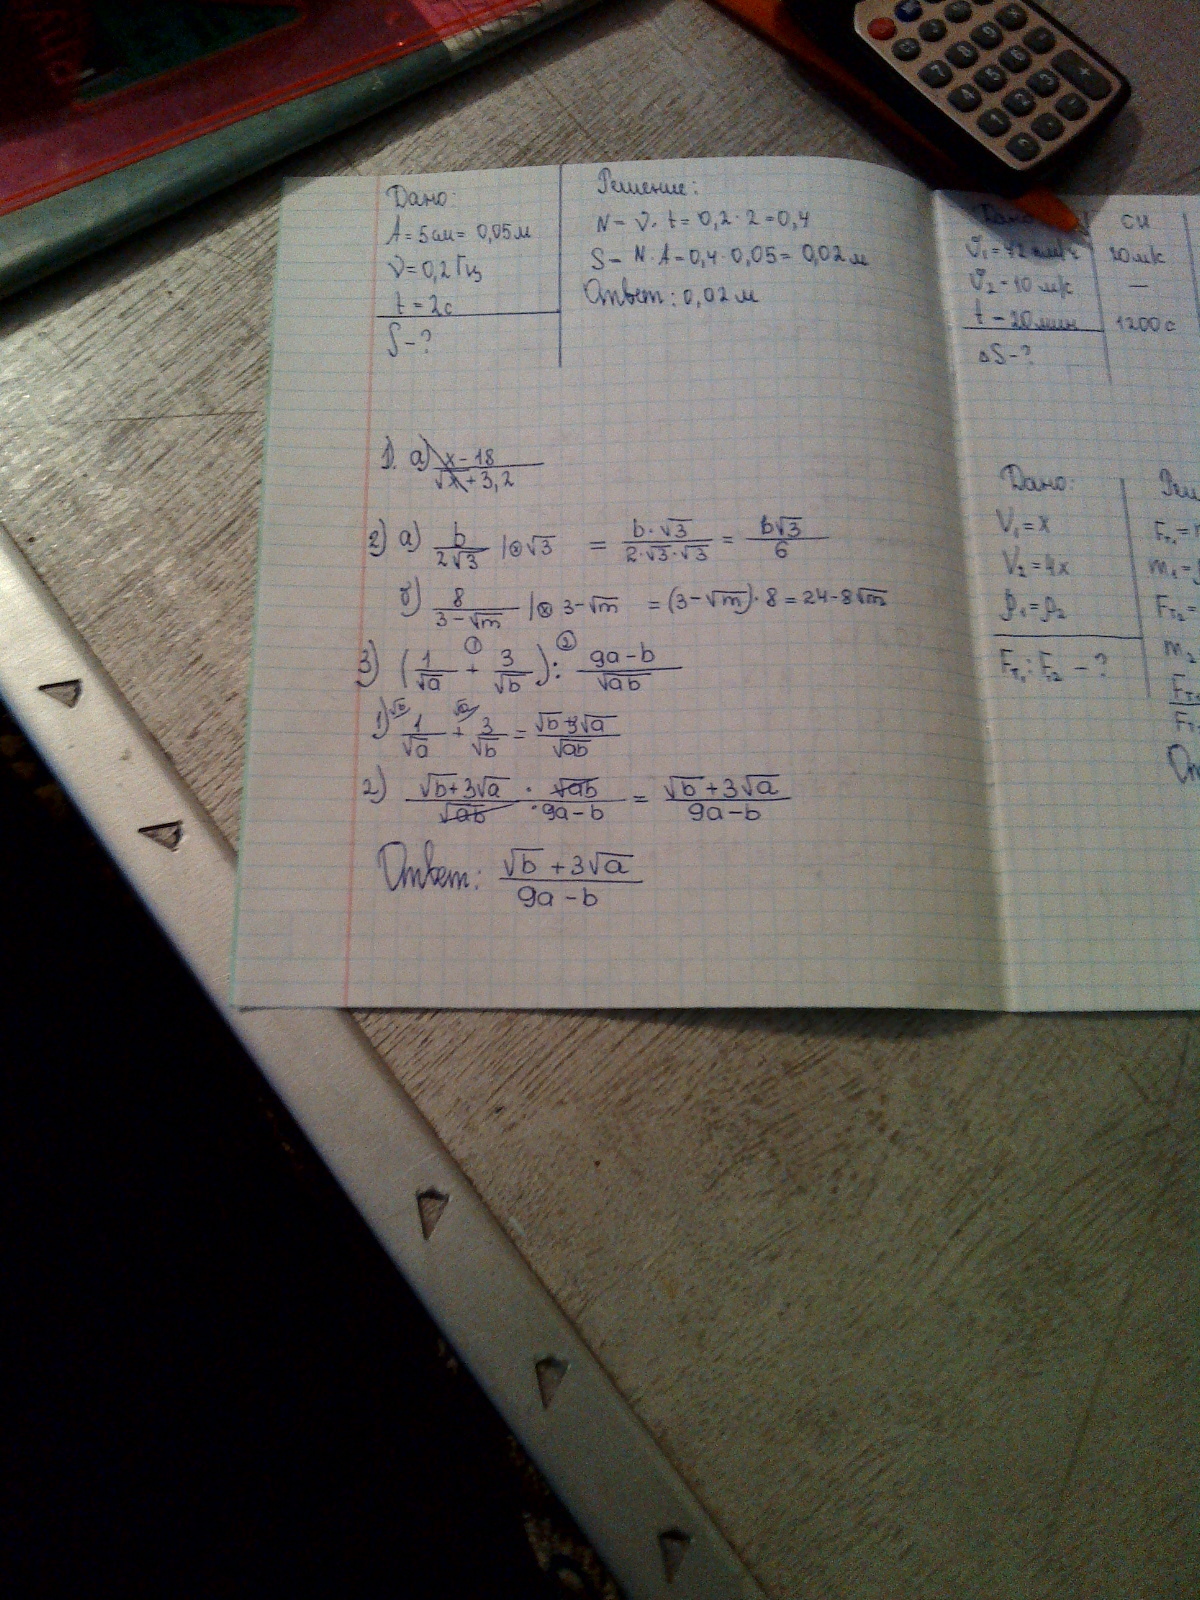 Дано:
A = 5см = 0,05м
ν = 0,2Гц
t = 2с
S - ?
Решение:
N = ν · t = 0,2 · 2 = 0,4
S = N · A = 0,4 · 0,05 = 0,02 м
Ответ: 0,02 м
1). а) x - 18 / √x + 3,2
2) а) b / 2√3 |⊗√3 = b · √3 / 2·√3·√3 = b√3 / 6
б) 8 / 3-√m |⊗ 3-√m = (3-√m) · 8 = 24-8√m
3) (1/√a +① 3/√b) :② 9a-b / √ab
1) √b 1/√a + √a 3/√b = √b+3√a / √ab
2) √b+3√a / √ab · √ab / 9a-b = √b+3√a / 9a-b
Ответ: √b + 3√a / 9a - b
Дано: СИ
V₁ = 72 км/ч 20м/с
V₂ = 10 м/с —
t = 20мин 1200с
ΔS - ?
Дано:
V₁ = x
V₂ = 4x
ρ₁ = ρ₂
Fт₁ : Fт₂ - ?
Fт₁ =
m₁ =
Fт₂ =
m₂